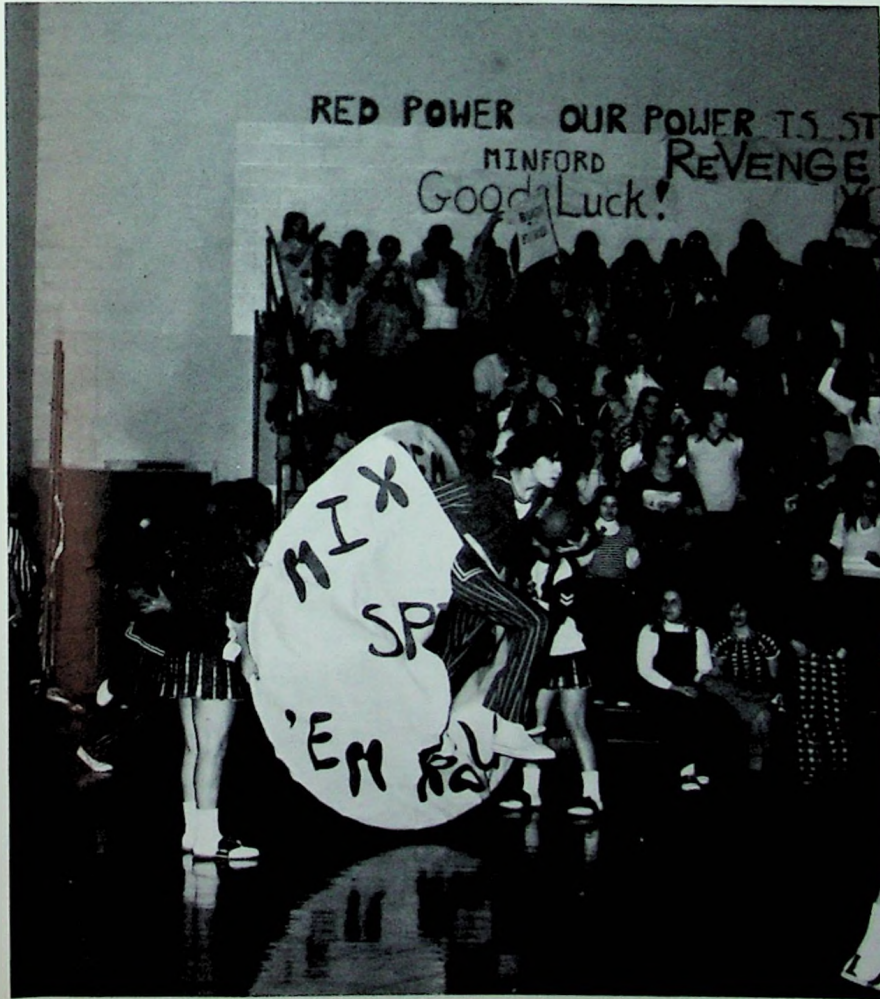 RED POWER OUR POWER IS ST
MINFORD REVENGE
Good Luck!
MIX
SP
'EM